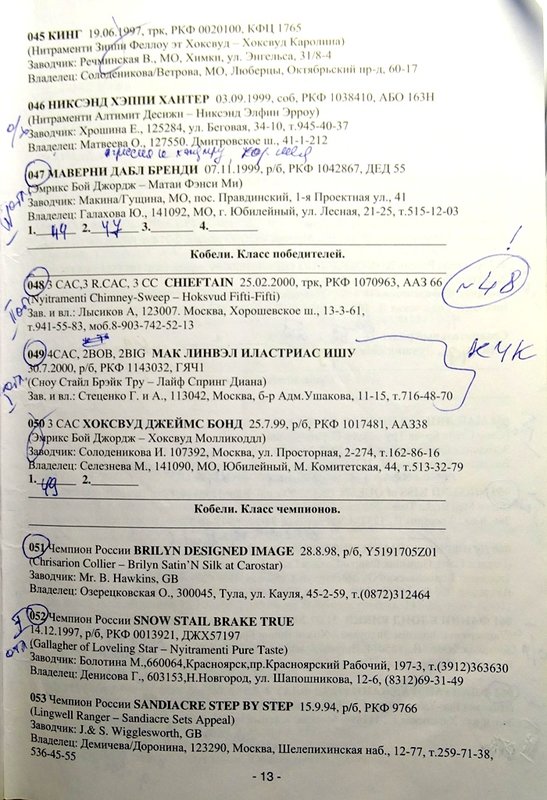 045 КИНГ 19.06.1997, трк, РКФ 0020100, КФЦ 1765
(Нитраменти Зиппи Феллоу эт Хоксвуд – Хоксвуд Каролина)
Заводчик: Речминская В., МО, Химки, ул. Энгельса, 31/8-4
Владелец: Солоденикова/Ветрова, МО, Люберцы, Октябрьский пр-д, 60-17
046 НИКСЭНД ХЭППИ ХАНТЕР 03.09.1999, соб, РКФ 1038410, АБО 163Н
(Нитраменти Алтимит Десижн – Никсэнд Элфин Эрроу)
Заводчик: Хрошина Е., 125284, ул. Беговая, 34-10, т.945-40-37
Владелец: Матвеева О., 127550. Дмитровское ш., 41-1-212
047 МАВЕРНИ ДАБЛ БРЕНДИ 07.11.1999, р/б, РКФ 1042867, ДЕД 55
(Эмрикс Бой Джордж – Матаи Фэнси Ми)
Заводчик: Макина/Гущина, МО, пос. Правдинский, 1-я Проектная ул., 41
Владелец: Галахова Ю., 141092, МО, г. Юбилейный, ул. Лесная, 21-25, т.515-12-03
1. 44 2. 47 3. 4.
Кобели. Класс победителей.
048 3 САС,3 R.САС, 3 СС CHIEFTAIN 25.02.2000, трк, РКФ 1070963, ААЗ 66
(Nyitramenti Chimney-Sweep – Hoksvud Fifti-Fifti)
Зав. и вл.: Лысиков А, 123007. Москва, Хорошевское ш., 13-3-61,
т.941-55-83, моб.8-903-742-52-13
~48 !
049 4САС, 2ВОВ, 2BIG МАК ЛИНВЭЛ ИЛАСТРИАС ИШУ
30.7.2000, р/б, РКФ 1143032, ГЯЧ1
(Сноу Стайл Брэйк Тру – Лайф Спринг Диана)
Зав. и вл.: Стеценко Г. и А., 113042, Москва, б-р Адм.Ушакова, 11-15, т.716-48-70
КЧК
050 3 САС ХОКСВУД ДЖЕЙМС БОНД 25.7.99, р/б, РКФ 1017481, АА338
(Эмрикс Бой Джордж – Хоксвуд Молликоддл)
Заводчик: Солоденикова И. 107392, Москва, ул. Просторная, 2-274, т.162-86-16
Владелец: Селезнева М., 141090, МО, Юбилейный, М. Комитетская, 44, т.513-32-79
1. 49 2.
Кобели. Класс чемпионов.
051 Чемпион России BRILYN DESIGNED IMAGE 28.8.98, р/б, Y5191705Z01
(Chrisarion Collier – Brilyn Satin’N Silk at Carostar)
Заводчик: Mr. B. Hawkins, GB
Владелец: Озерецковская О., 300045, Тула, ул. Кауля, 45-2-59, т.(0872)312464
052 Чемпион России SNOW STAIL BRAKE TRUE
14.12.1997, р/б, РКФ 0013921, ДЖХ57197
(Gallagher of Loveling Star – Nyitramenti Pure Taste)
Заводчик: Болотина М.,660064,Красноярск,пр.Красноярский Рабочий, 197-3, т.(3912)363630
Владелец: Денисова Г., 603153,Н.Новгород, ул. Шапошникова, 12-6, (8312)69-31-49
053 Чемпион России SANDIACRE STEP BY STEP 15.9.94, р/б, РКФ 9766
(Lingwell Ranger – Sandiacre Sets Appeal)
Заводчик: J.& S. Wigglesworth, GB
Владелец: Демичева/Доронина, 123290, Москва, Шелепихинская наб., 12-77, т.259-71-38,
536-45-55
- 13 -